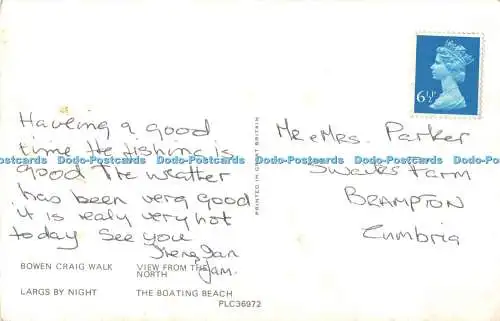 6½P
Haveing a good
time the fishing is
good The weather
has been very good
it is realy very hot
today See you
Irene, Ian
Jam.
Mr & Mrs. Parker
Farm
BRAMPTON
Cumbria
PRINTED IN GREAT BRITAIN
Dodo-Postcards Dodo-Postcards Dodo-Postcards Dodo-Postcards
BOWEN CRAIG WALK VIEW FROM THE
NORTH
LARGS BY NIGHT THE BOATING BEACH
PLC36972